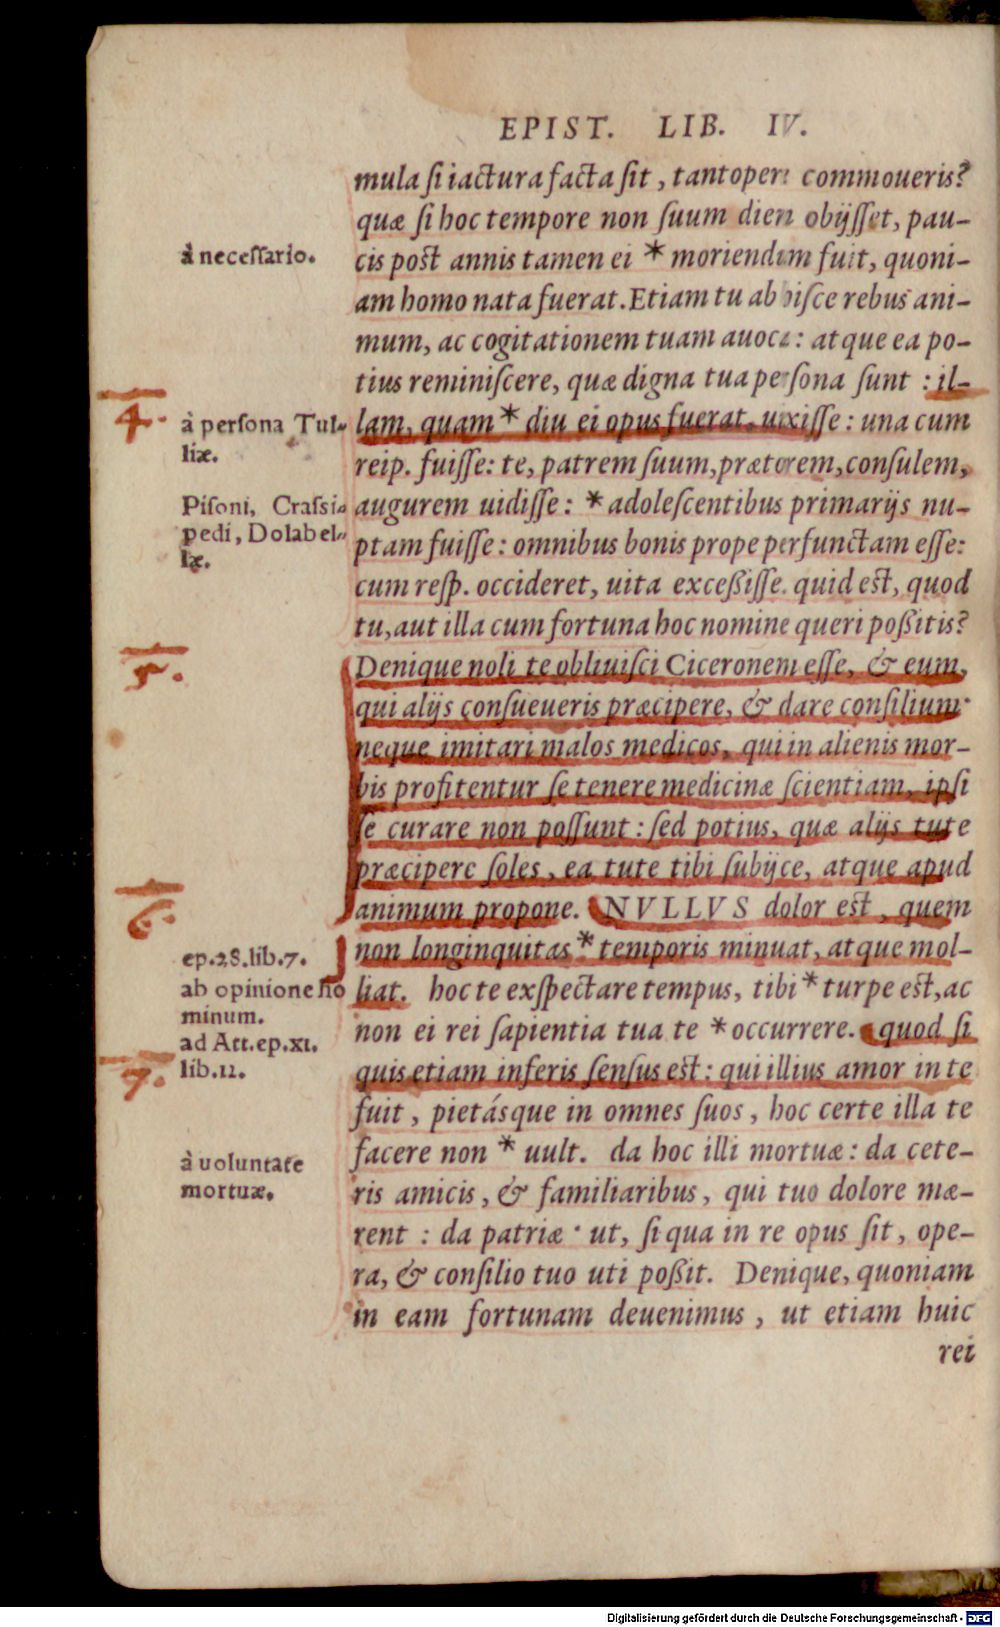 EPIST. LIB. IV.
mula ſi iactura facta ſit, tantopere commoueris?
quæ ſi hoc tempore non ſuum diem obijſſet, pau-
à neceſſario.
cis poſt annis tamen ei * moriendum fuit, quoni-
am homo nata fuerat. Etiam tu ab hiſce rebus ani-
mum, ac cogitationem tuam auoca: atque ea po-
tius reminiſcere, quæ digna tua perſona ſunt: il-
4.
à perſona Tul-
liæ.
lam, quam * diu ei opus fuerat, uixiſſe: una cum
reip. fuiſſe: te, patrem ſuum, prætorem, conſulem,
Piſoni, Craſsi-
pedi, Dolabel-
læ.
augurem uidiſſe: * adoleſcentibus primarijs nu-
ptam fuiſſe: omnibus bonis prope perfunctam eſſe:
cum reſp. occideret, uita exceßiſſe. quid eſt, quod
tu, aut illa cum fortuna hoc nomine queri poßitis?
5.
Denique noli te obliuiſci Ciceronem eſſe, & eum,
qui alijs conſueueris præcipere, & dare conſilium:
neque imitari malos medicos, qui in alienis mor-
bis profitentur ſe tenere medicinæ ſcientiam, ipſi
ſe curare non poſſunt: ſed potius, quæ alijs tute
præcipere ſoles, ea tute tibi ſubijce, atque apud
6.
animum propone. NVLLVS dolor eſt, quem
ep.28.lib.7.
ab opinione ho
minum.
ad Att.ep.XI.
lib.12.
non longinquitas * temporis minuat, atque mol-
liat. hoc te exſpectare tempus, tibi * turpe eſt, ac
non ei rei ſapientia tua te * occurrere. quod ſi
7.
quis etiam inferis ſenſus eſt: qui illius amor in te
fuit, pietásque in omnes ſuos, hoc certe illa te
à uoluntate
mortuæ.
facere non * uult. da hoc illi mortuæ: da cete-
ris amicis, & familiaribus, qui tuo dolore mæ-
rent: da patriæ: ut, ſi qua in re opus ſit, ope-
ra, & conſilio tuo uti poßit. Denique, quoniam
in eam fortunam deuenimus, ut etiam huic
rei
Digitalisierung gefördert durch die Deutsche Forschungsgemeinschaft - DFG